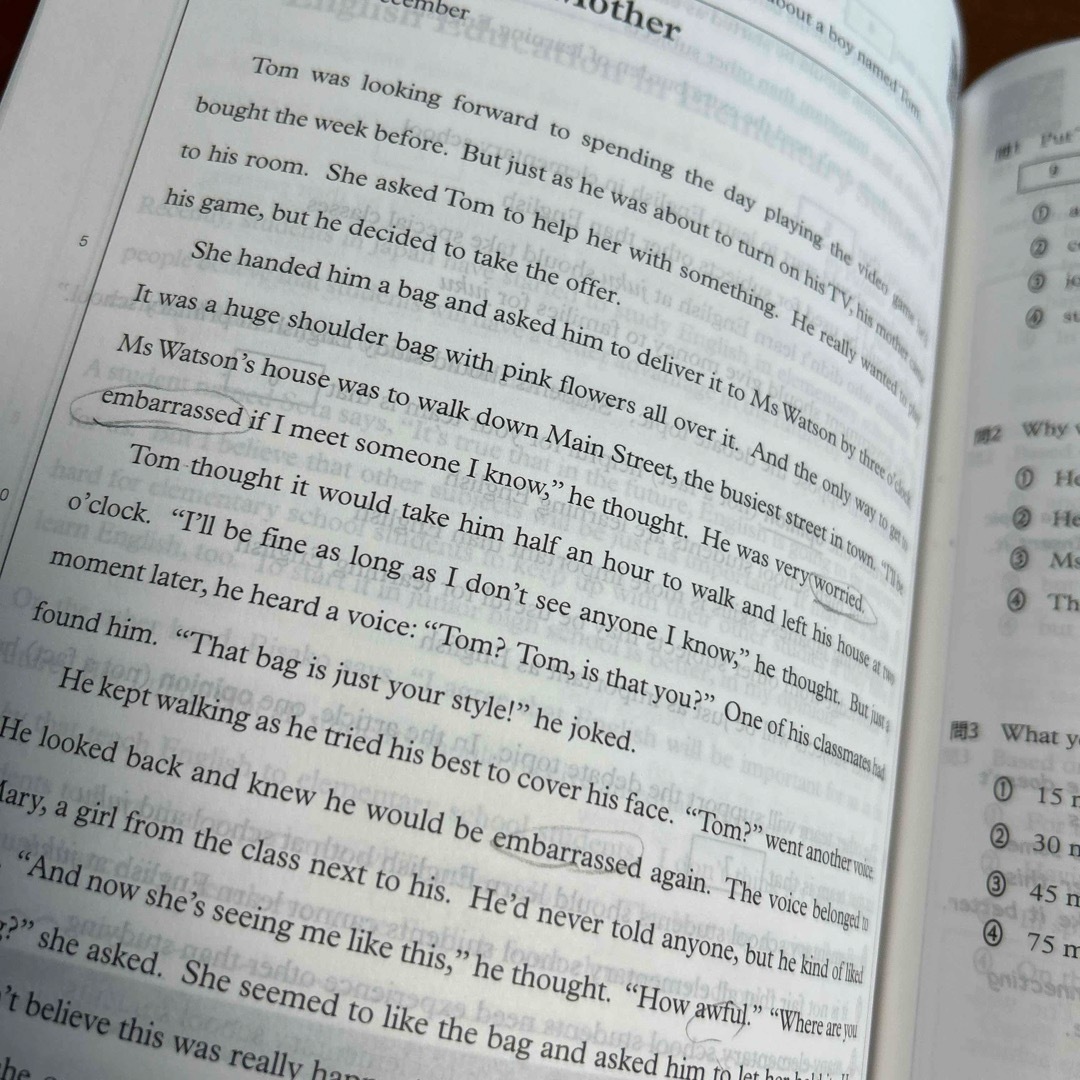 about a boy named Tom.
Mother
Tom was looking forward to spending the day playing the video game
bought the week before. But just as he was about to turn on his TV, his mother came
to his room. She asked Tom to help her with something. He really wanted to play
his game, but he decided to take the offer.
5
She handed him a bag and asked him to deliver it to Ms Watson by three o'clock.
It was a huge shoulder bag with pink flowers all over it. And the only way to get to
Ms Watson's house was to walk down Main Street, the busiest street in town. "I'll be
embarrassed if I meet someone I know," he thought. He was very worried.
Tom thought it would take him half an hour to walk and left his house at two
o'clock. "I'll be fine as long as I don't see anyone I know," he thought. But just a
moment later, he heard a voice: "Tom? Tom, is that you?" One of his classmates had
found him. "That bag is just your style!" he joked.
He kept walking as he tried his best to cover his face. "Tom?" went another voice.
He looked back and knew he would be embarrassed again. The voice belonged to
Mary, a girl from the class next to his. He'd never told anyone, but he kind of liked
"And now she's seeing me like this," he thought. "How awful." "Where are you
?" she asked. She seemed to like the bag and asked him to let her
't believe this was really
問1 Put
①
②
③
④
問2 Why
① He
② He
③ Ms
④ Th
問3 What
① 15
② 30
③ 45
④ 75